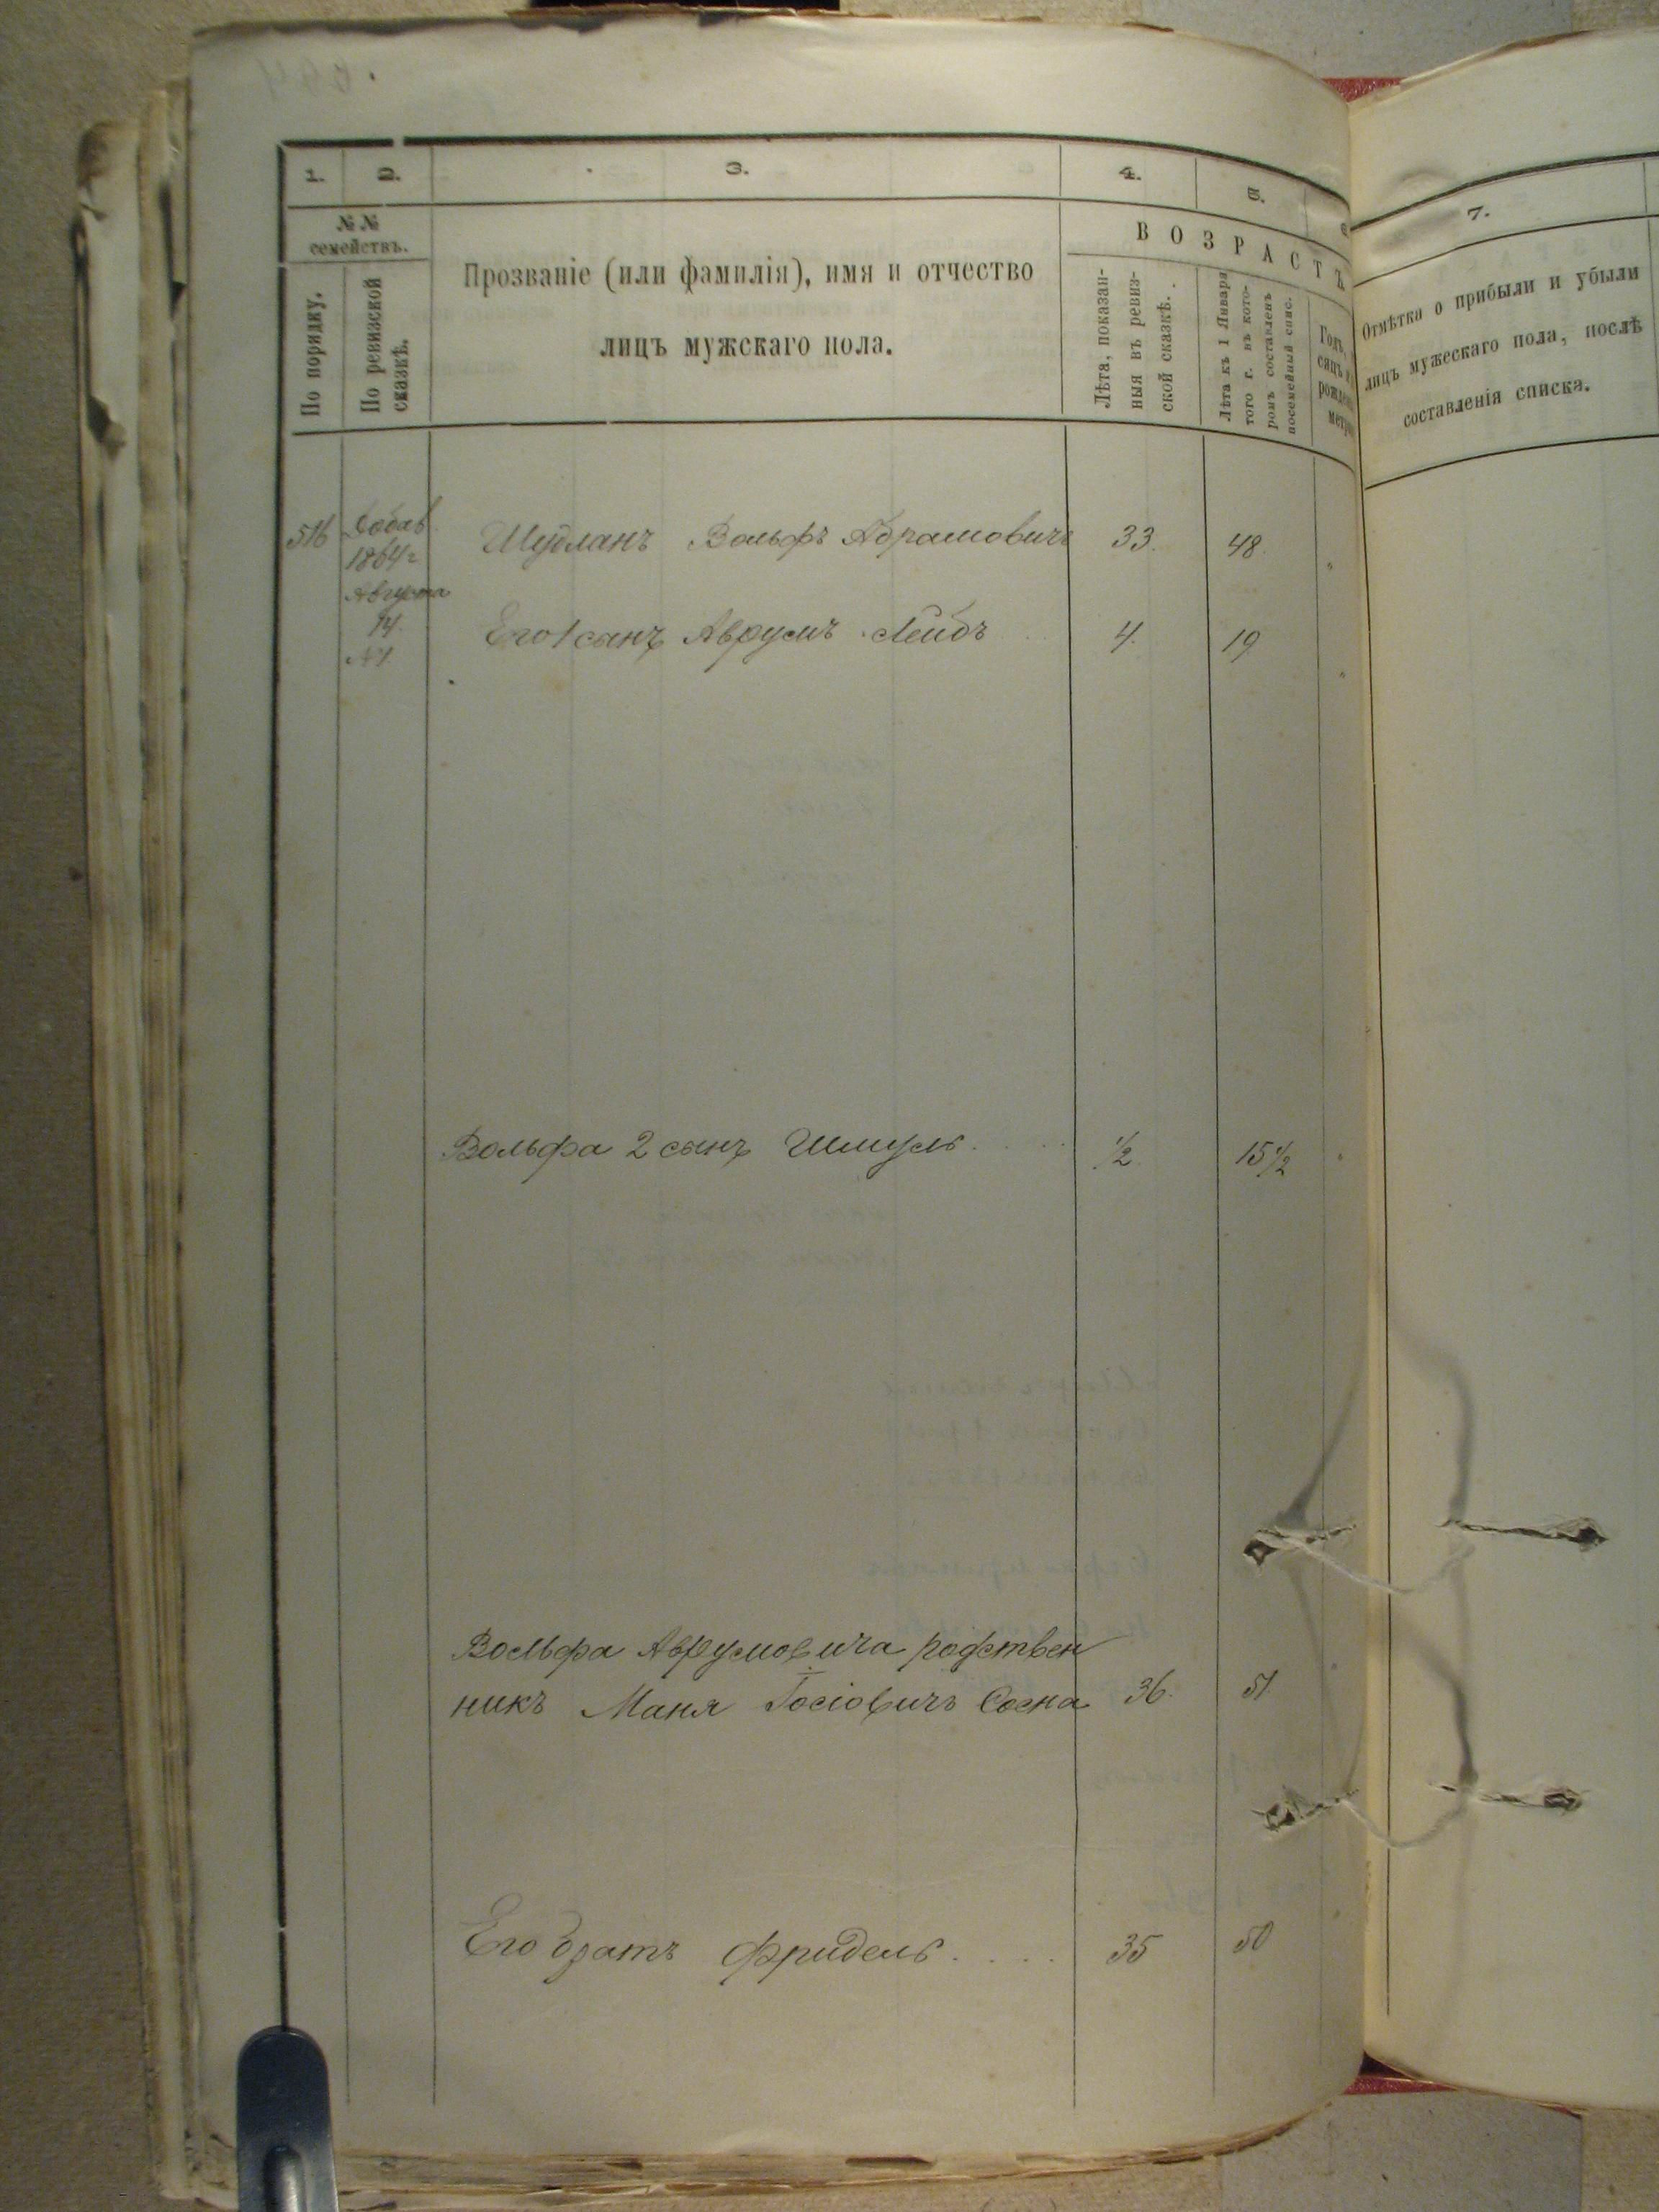 1.
2.
3.
4.
5.
7.
№№
семействъ.
По порядку.
По ревизской
сказкѣ.
Прозваніе (или фамилія), имя и отчество
лицъ мужскаго пола.
ВОЗРАСТЪ
Лѣта, показан-
ныя въ ревиз-
ской сказкѣ.
Лѣта къ 1 Января
того г. въ кото-
ромъ составленъ
посемейный спис.
Отмѣтка о прибыли и убыли
лицъ мужескаго пола, послѣ
составленія списка.
516
1864 г
Августа
14.
№1
Вольфъ Абрамовичъ 33. 48.
Его 1 сынъ Аврумъ Лейбъ 4. 19
Вольфа 2 сынъ Шмуль. 1/2. 15 1/2
Вольфа Аврумовича родствен
никъ Маня Іосіовичъ Сосна 36. 51.
Его братъ Фридель.... 35 50